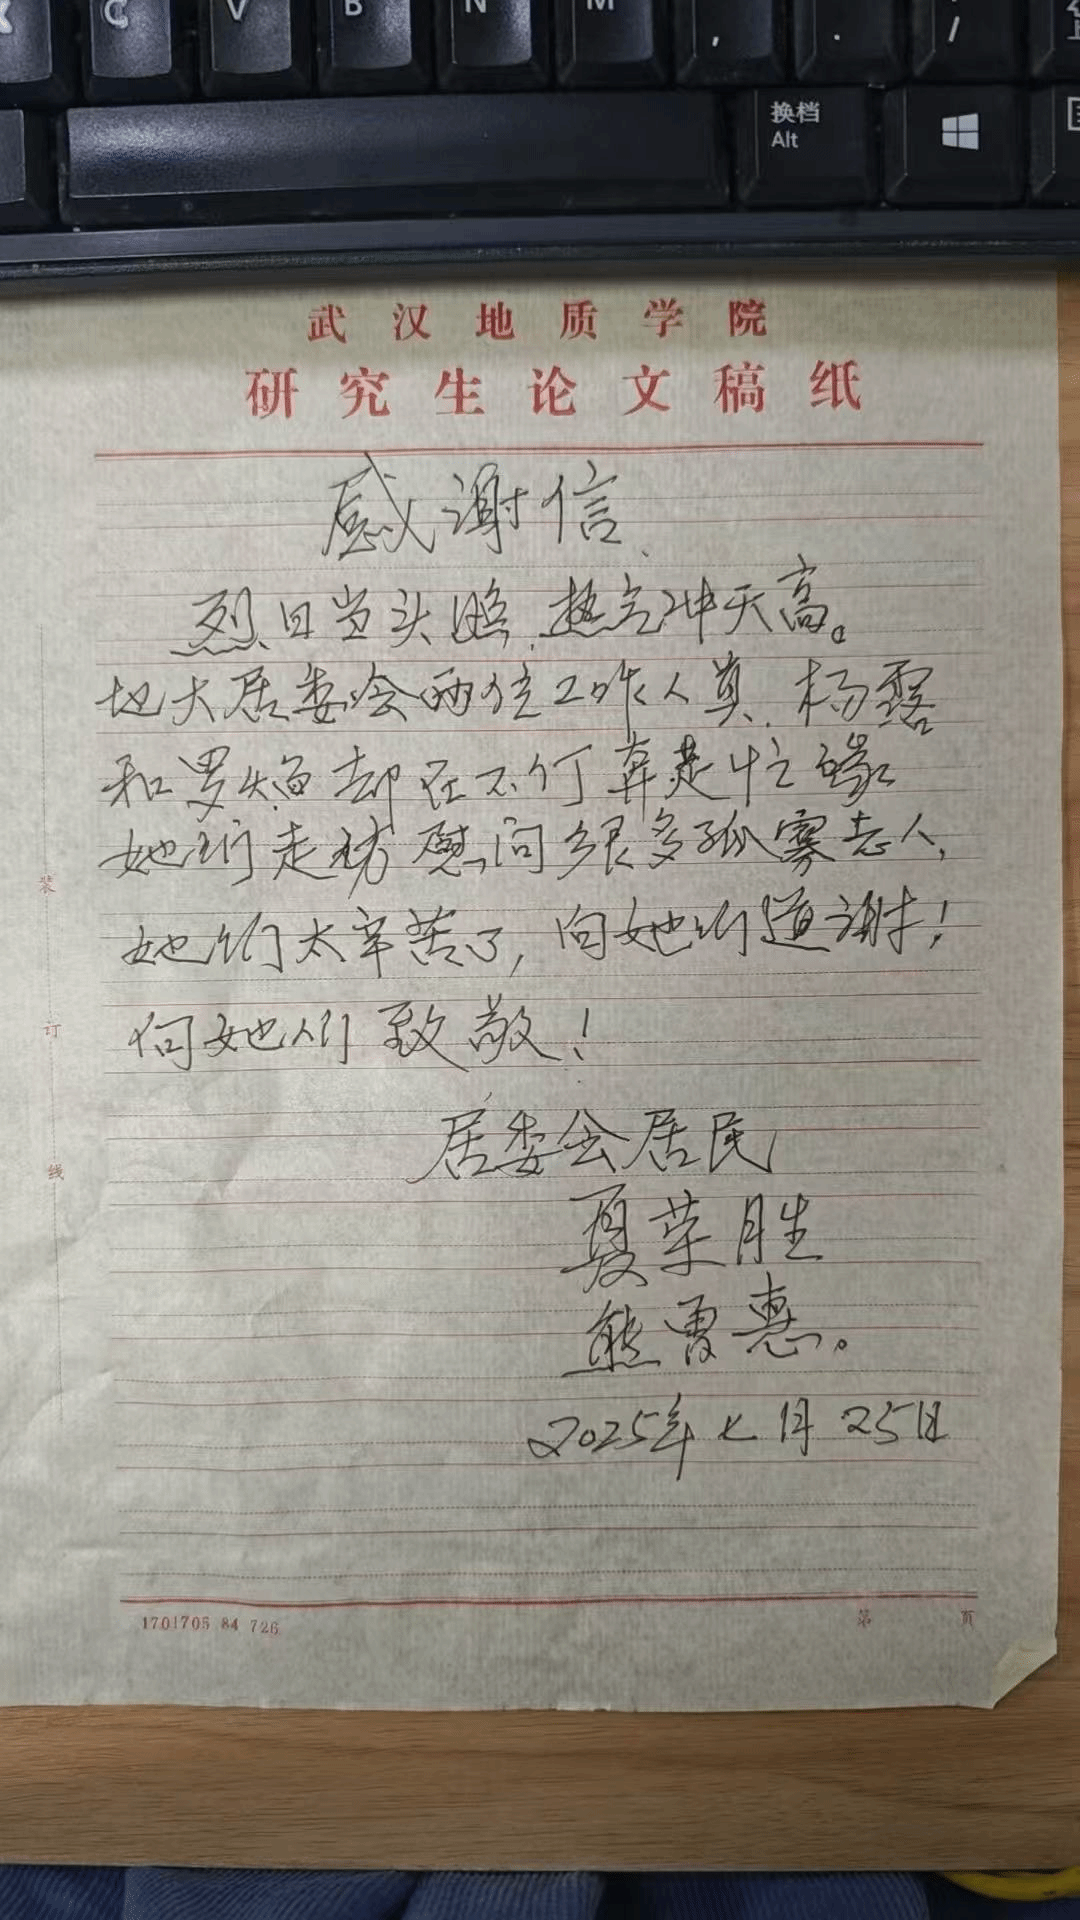 C V B N M , . /
换档
Alt
武汉地质学院
研究生论文稿纸
感谢信
烈日当头照,热气冲天高。
地大居委会两位工作人员,杨露
和罗焰却在不停奔走忙碌
她们走访慰问很多孤寡老人,
她们太辛苦了,向她们道谢!
向她们致敬!
居委会居民
夏荣胜
熊曾惠。
2025年七月25日
装
订
线
1701705 84 726
第 页